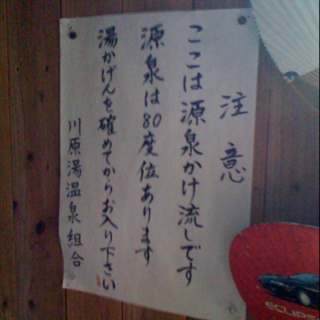 注意
ここは源泉かけ流しです
源泉は80度位あります
湯かげんを確めてからお入り下さい
川原湯温泉組合
ECLIPS